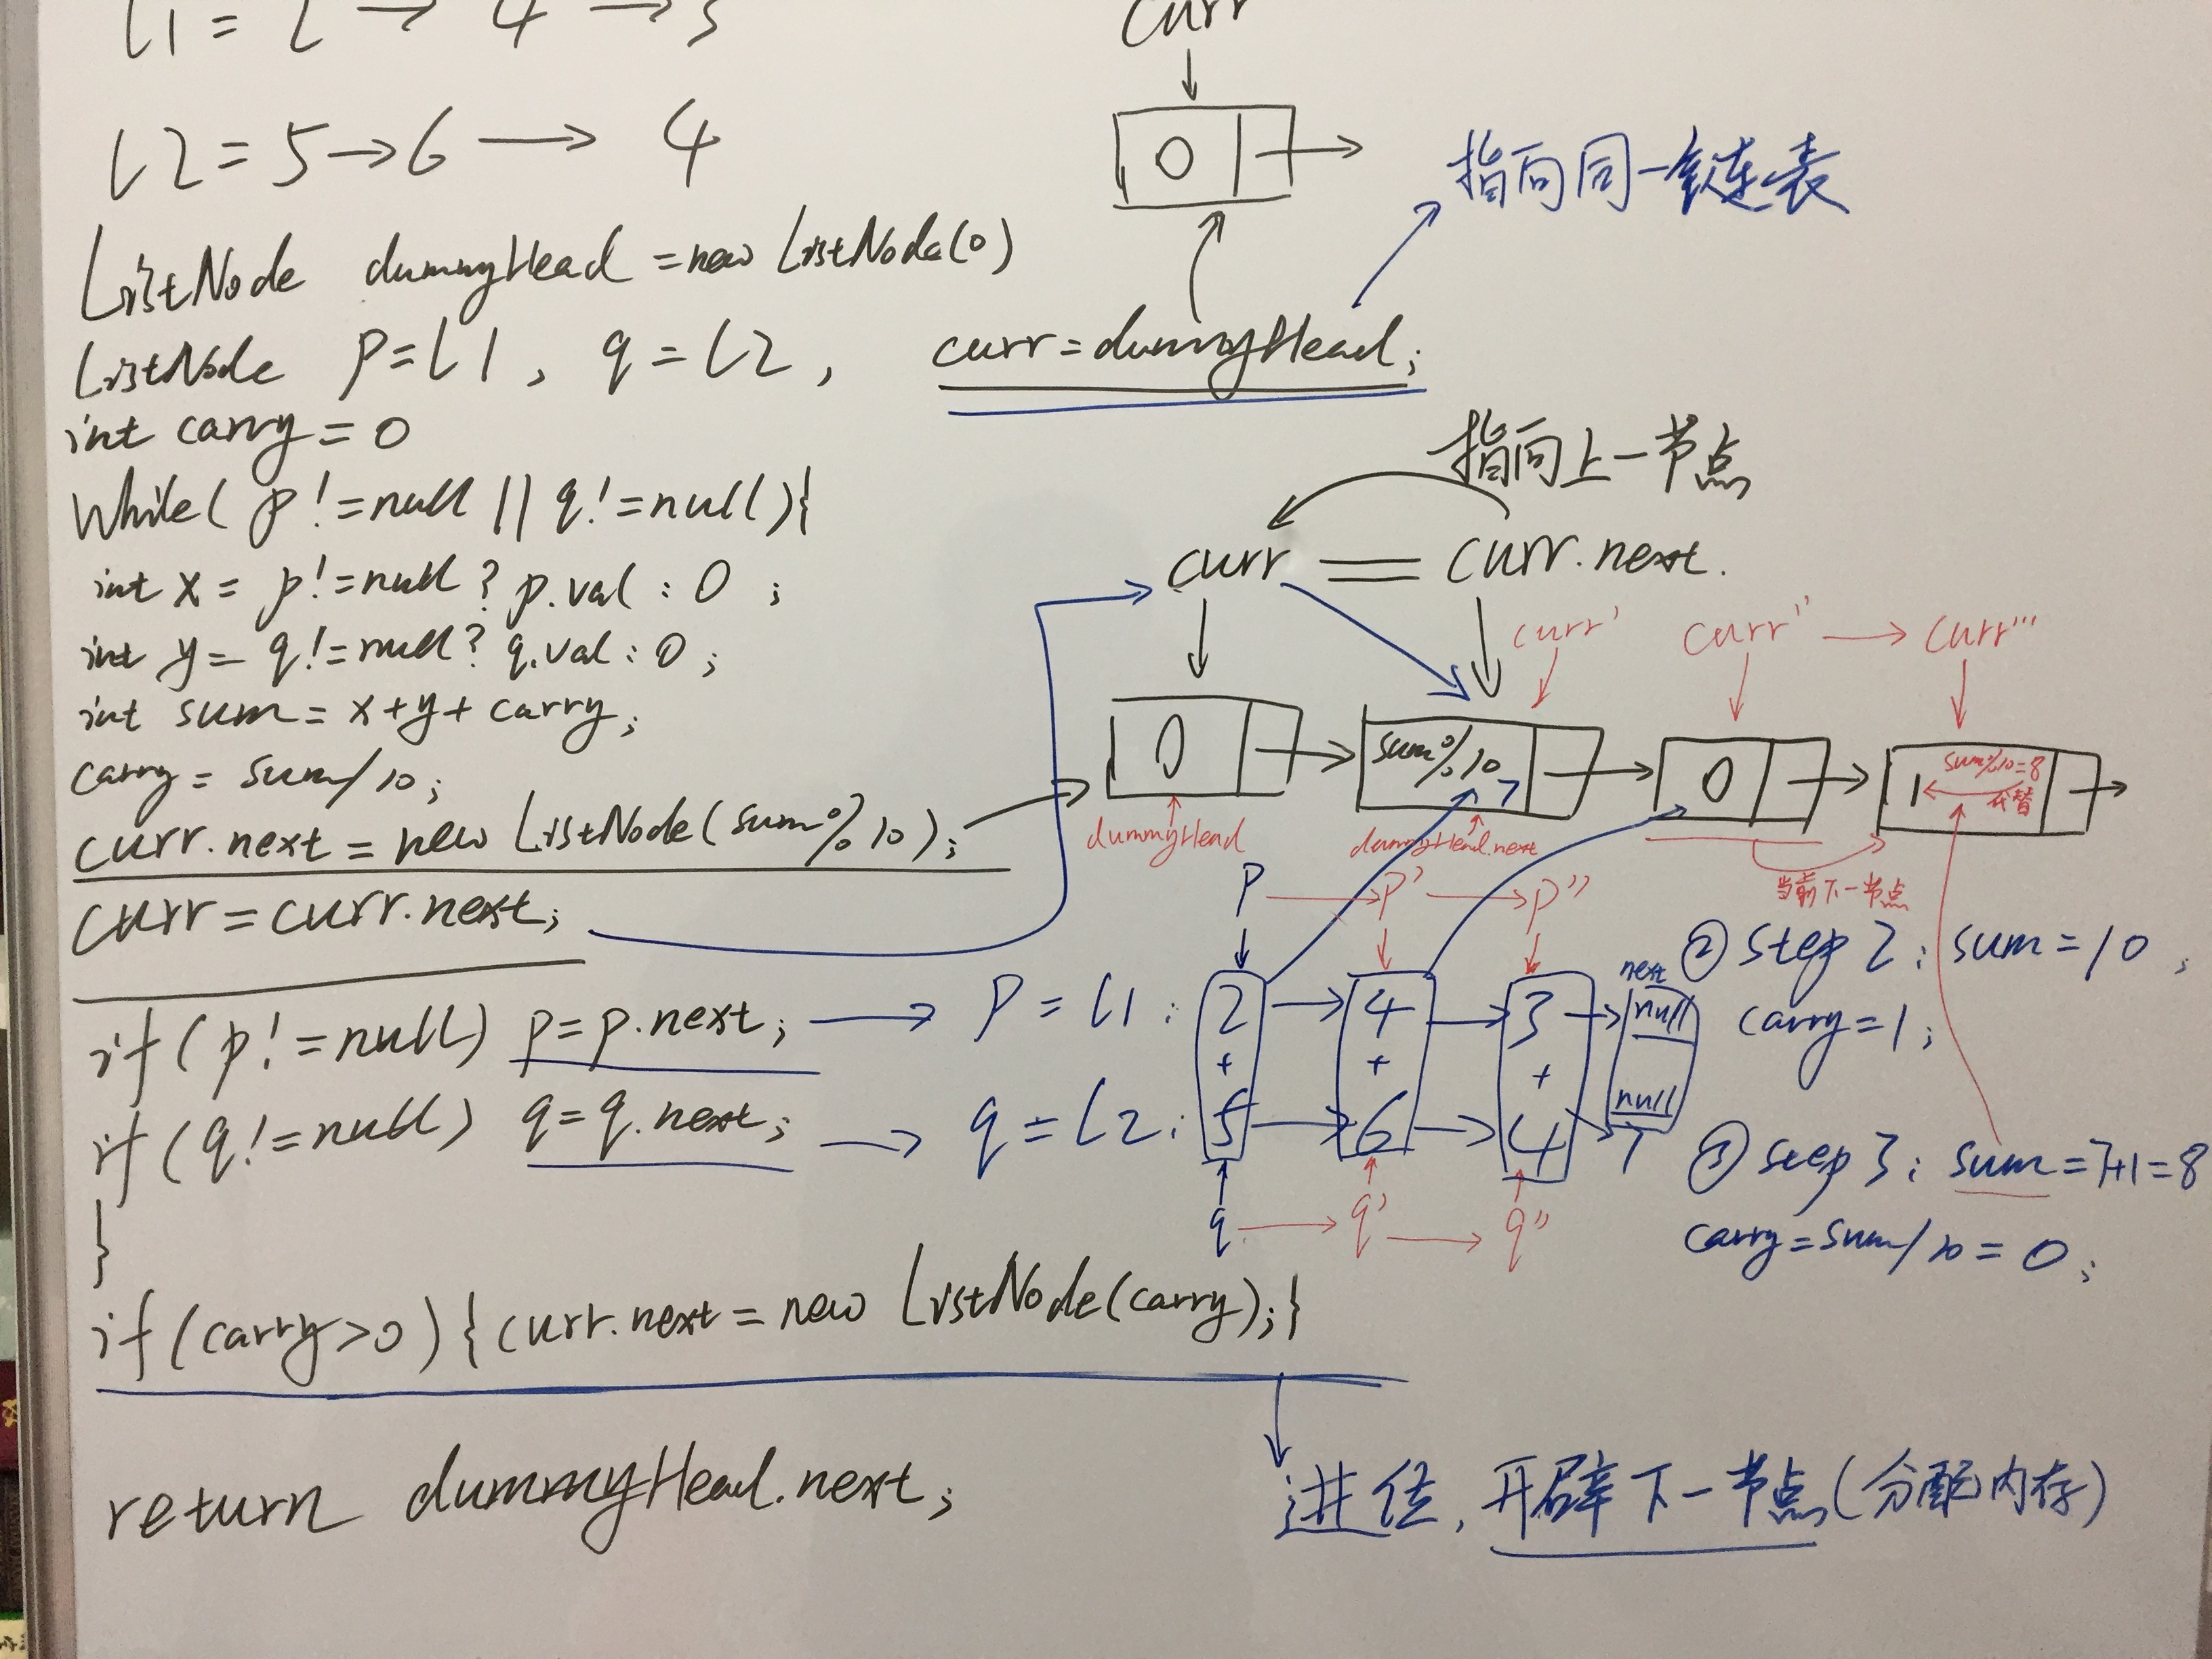 l1 = 2 → 4 → 3
l2 = 5 → 6 → 4
ListNode dummyHead = new ListNode(0)
ListNode p = l1, q = l2, curr = dummyHead;
int carry = 0
while( p != null || q != null){
int x = p != null ? p.val : 0 ;
int y = q != null ? q.val : 0 ;
int sum = x + y + carry;
carry = sum/10;
curr.next = new ListNode(sum%10);
curr = curr.next;
if(p != null) p = p.next;
if(q != null) q = q.next;
}
if(carry>0){curr.next = new ListNode(carry);}
return dummyHead.next;
curr
0
指向同一个链表
指向上一节点
curr = curr.next.
curr' curr'' → curr'''
0 sum%10 7 0 1 sum%10=8
代替
dummyHead dummyHead.next
当前下一节点
p → p' → p''
p = l1 : 2 → 4 → 3 → null
next
+ + +
q = l2 : 5 → 6 → 4 → null
7
q → q' → q''
② step 2 : sum = 10 ;
carry = 1 ;
③ step 3 : sum = 7+1 = 8
carry = sum/10 = 0 ;
进位, 开辟下一节点(分配内存)